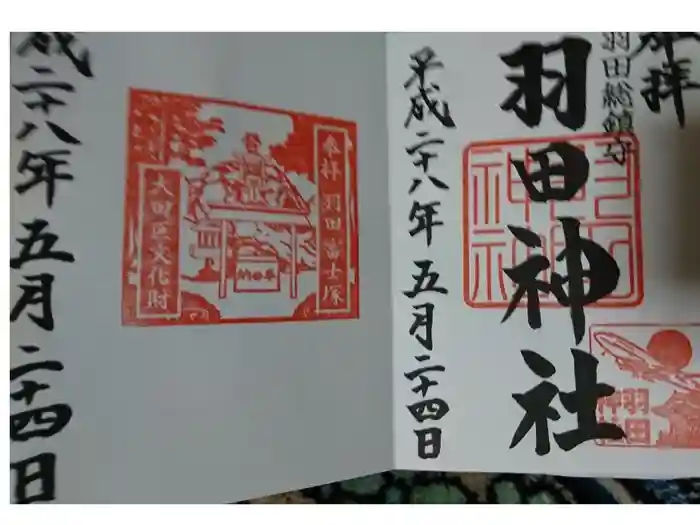 奉拝
羽田総鎮守
羽田神社
羽田
神社
羽田
神社
平成二十八年五月二十四日
奉拝 羽田富士塚
奉納
大田区文化財
成二十八年五月二十四日